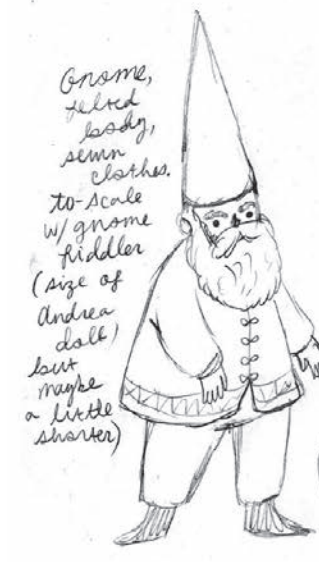 Gnome,
felted
body,
sewn
clothes.
to-scale
w/ gnome
fiddler
(size of
andrea
doll)
but
maybe
a little
shorter)